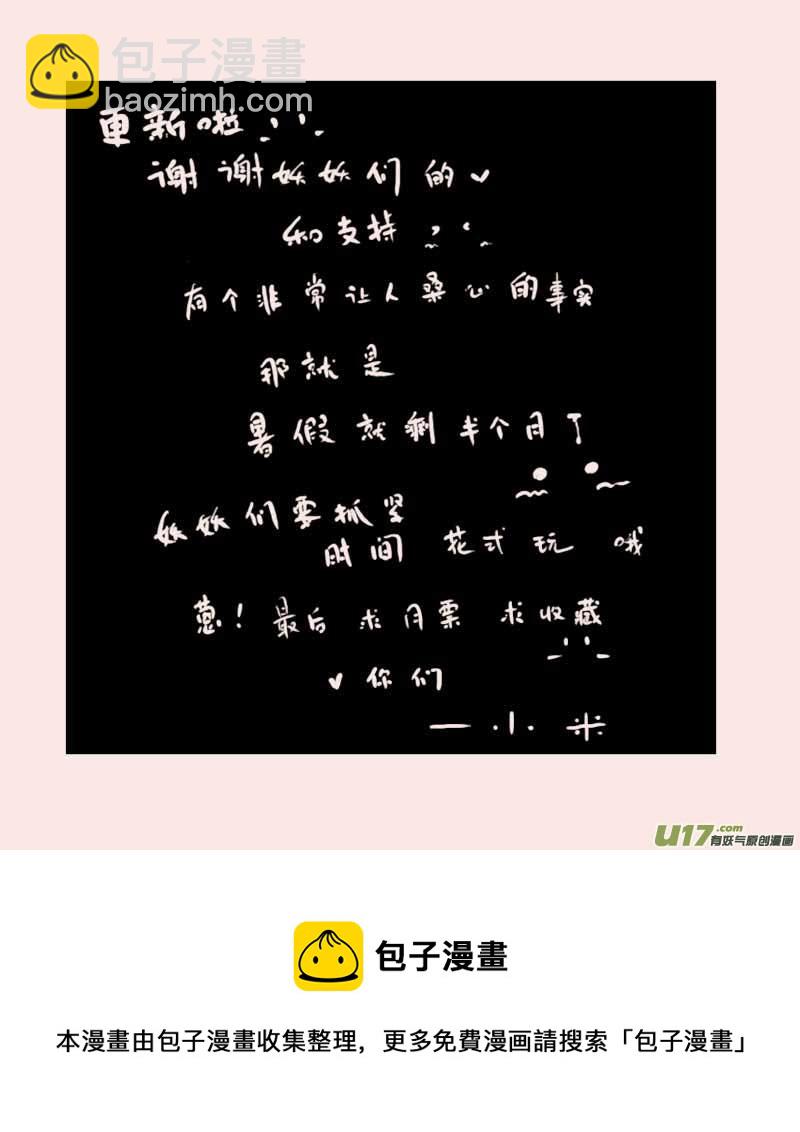 包子漫畫
baozimh.com
更新啦
谢谢妖妖们的♥
和支持
有个非常让人桑心的事实
那就是
暑假就剩半个月了
妖妖们要抓紧
时间 花式玩 哦
蒽！最后 求月票 求收藏
♥你们
一小米
U17.com
有妖气原创漫画
包子漫畫
本漫畫由包子漫畫收集整理，更多免費漫画請搜索「包子漫畫」